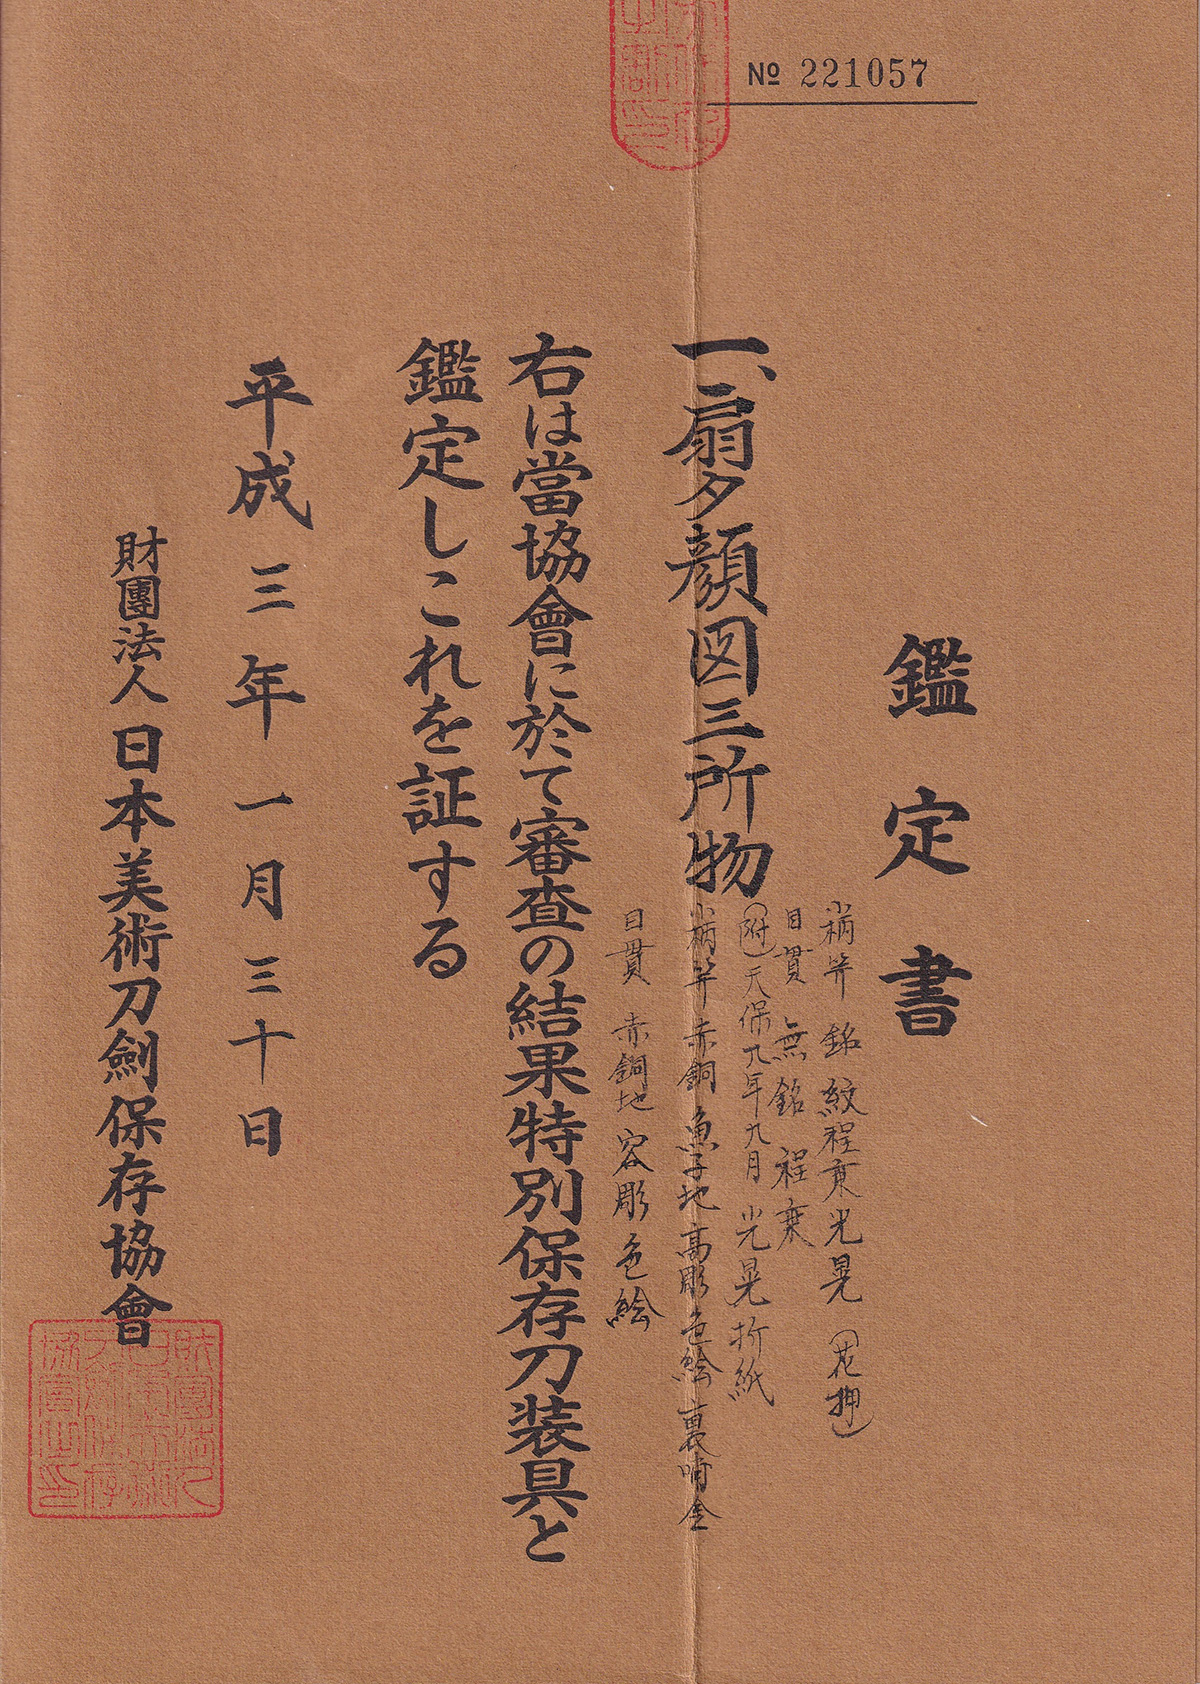 № 221057
鑑定書
一、扇夕顔図三所物
小柄笄 銘 紋程乗光晃(花押)
目貫 無銘 程乗
(附)天保九年九月 光晃折紙
小柄笄 赤銅魚子地高彫色絵裏哺金
目貫 赤銅地容彫色絵
右は當協會に於て審査の結果特別保存刀装具と
鑑定しこれを証する
平成三年一月三十日
財團法人日本美術刀劍保存協會